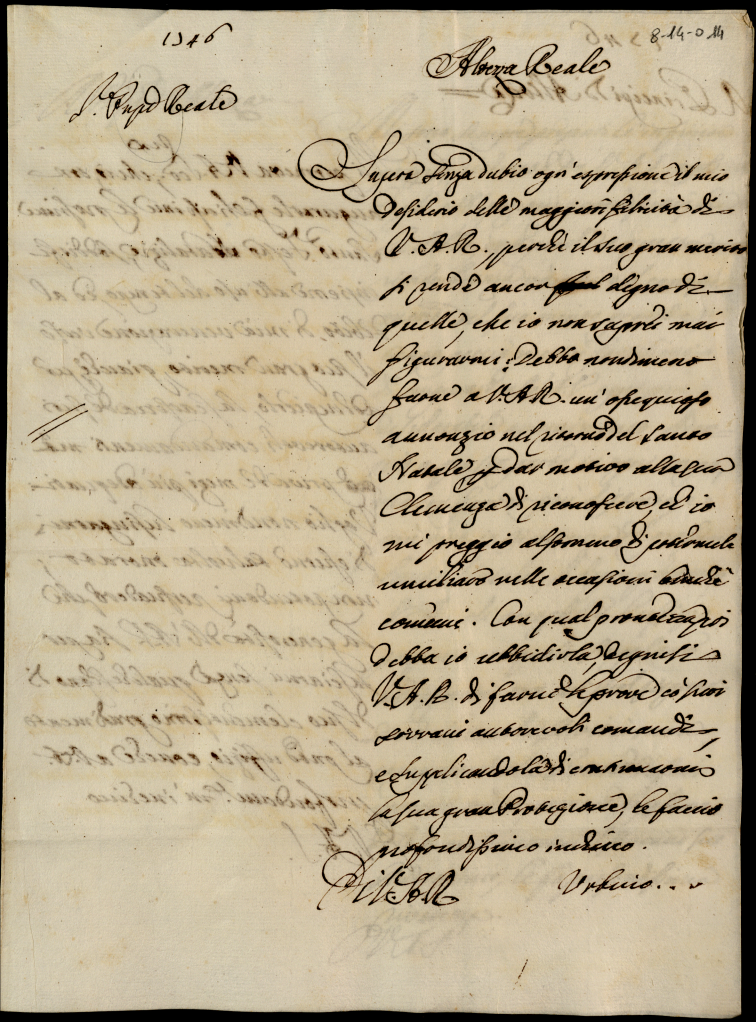 1746
8-14-014
Altezza Reale
Reale
Supera senza dubio ogni espressione il mio
desiderio delle maggiori felicità di
V. A. R., perché il suo gran merito
si rende ancor degno di
quelle, che io non saprei mai
figurarmi; Debbo nondimeno
farne a V. A. R. un' ossequioso
annonzio nel ritorno del Santo
Natale p dar motivo alla sua
Clemenza di riconoscere, ch' io
mi preggio al sommo di
umiliarò nelle occasioni
comuni. Con qual
debba io ubbidirla, degnisi
V. A. R. di farne le prove co' suoi
sovrani autorevoli comandi,
e supplicandola di continuarmi
la sua gran Protezione, le faccio
profondissimo inchino.
Di V. A. R. Urbino..